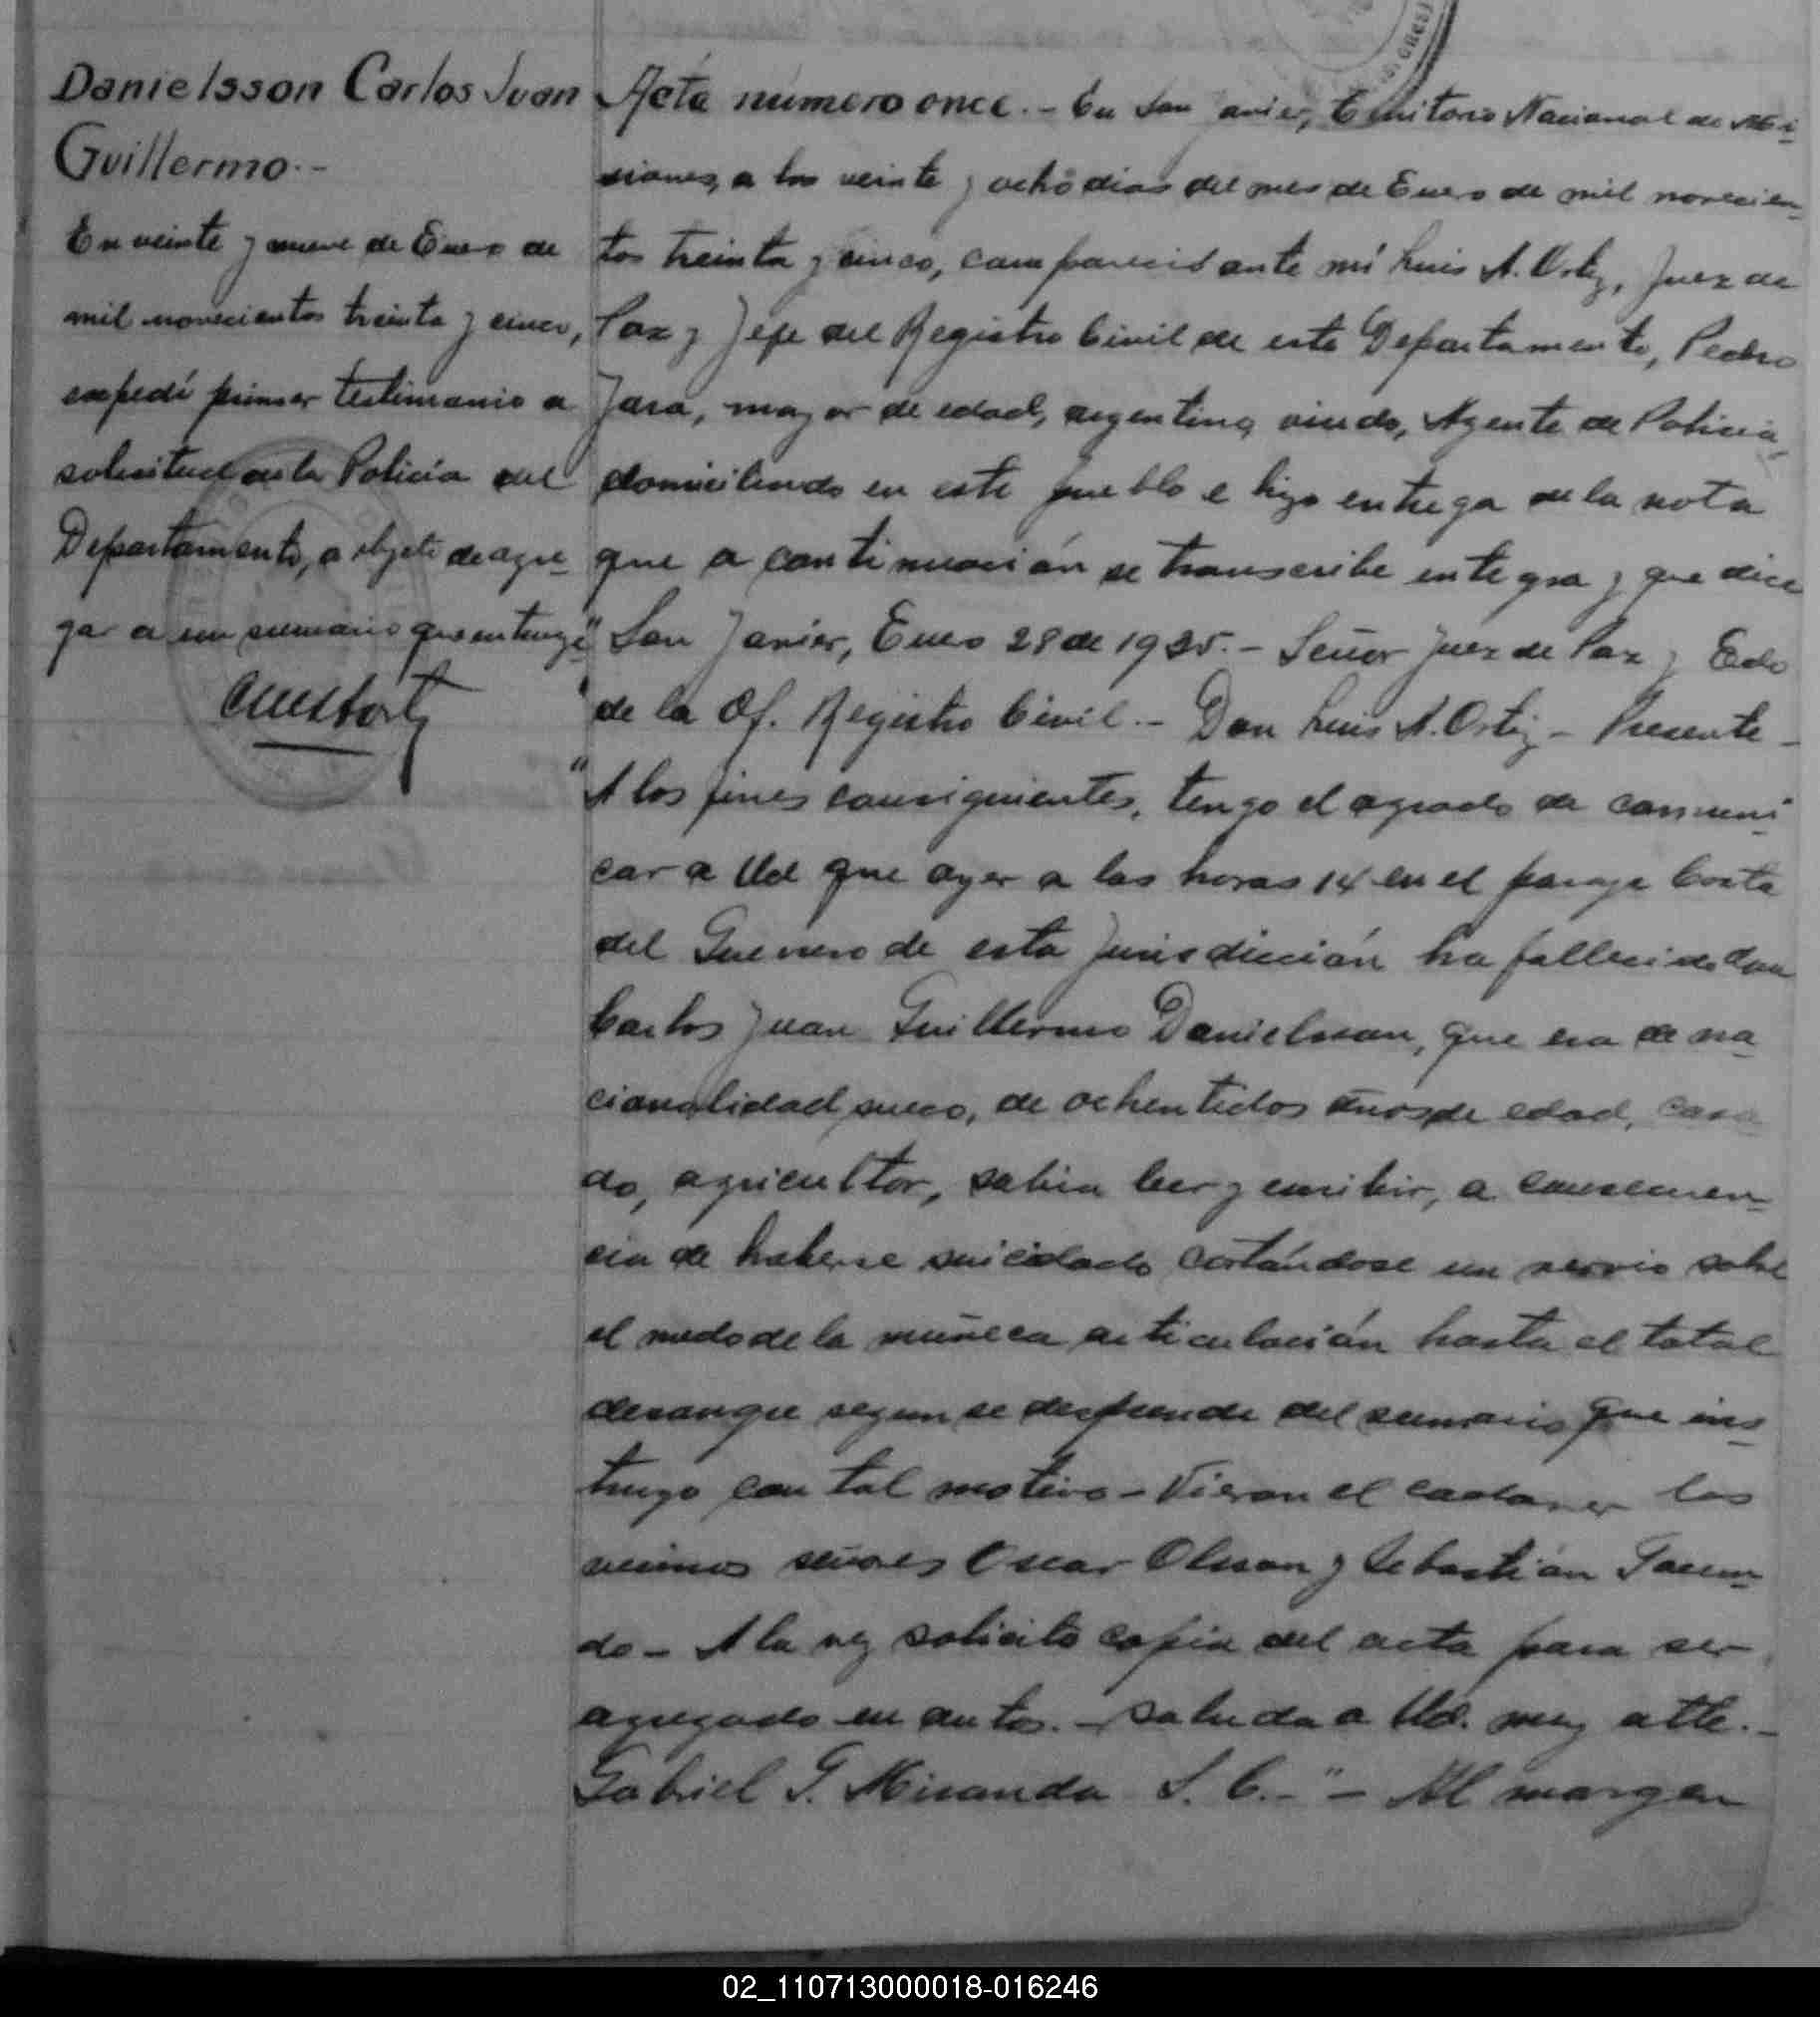 Danielsson Carlos Juan
Guillermo.-
En veinte y nueve de Enero de
mil novecientos treinta y cinco,
expedí primer testimonio a
solicitud de la Policía del
Departamento, a objeto de agre-
gar a un sumario que
Acta número once.- En San Javier, Territorio Nacional de Mi-
siones, a los veinte y ocho dias del mes de Enero de mil novecien-
tos treinta y cinco, compareció ante mí Luis A. Ortiz, Juez de
Paz y Jefe del Registro Civil de este Departamento, Pedro
Jara, mayor de edad, argentino, viudo, Agente de Policía,
domiciliado en este pueblo e hizo entrega de la nota
que a continuación se transcribe integra y que dice
" San Javier, Enero 28 de 1935.- Señor Juez de Paz y Edo
" de la Of. Registro Civil.- Don Luis A. Ortiz - Presente -
" A los fines consiguientes, tengo el agrado de comuni-
car a Ud que ayer a las horas 14 en el paraje Costa
del Guerrero de esta Jurisdicción ha fallecido don
Carlos Juan Guillermo Danielsson, que era de na-
cionalidad sueco, de ochentidos años de edad, casa-
do, agricultor, sabia leer y escribir, a consecuen-
cia de haberse suicidado cortándose un nervio sobre
el nudo de la muñeca articulación hasta el total
desangre segun se desprende del sumario que ins-
truyo con tal motivo - Vieron el cadaver los
vecinos señores Oscar Olsson y Sebastián Facun-
do - A la vez solicito copia del acta para ser
agregado en autos. - Saluda a Ud. muy atte.-
Gabriel G. Miranda S. C.-" - Al margen
02_110713000018-016246